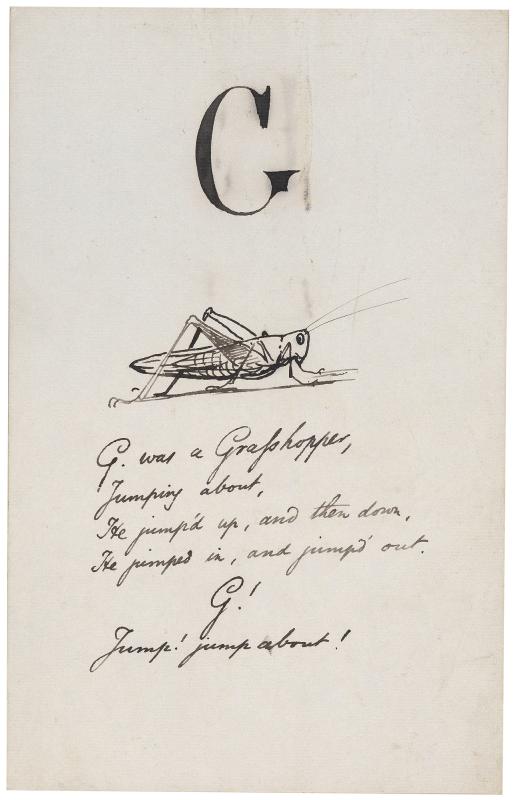 G
G. was a Graſshopper,
Jumping about,
He jump'd up, and then down,
He jumped in, and jump'd out.
G!
Jump! jump about!